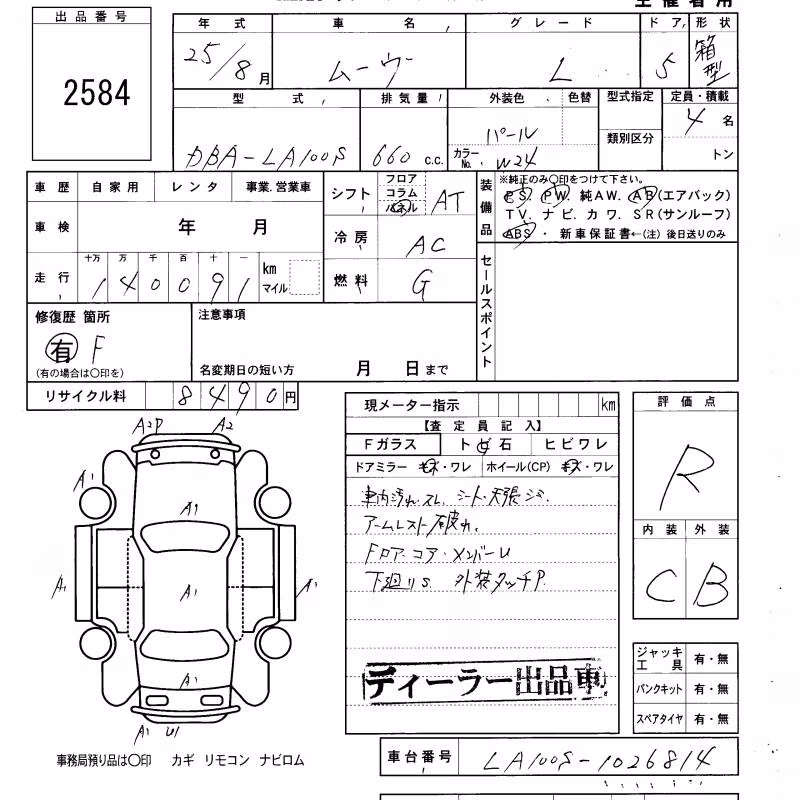 主催者用
出品番号
2584
年式 車名 グレード ドア 形状
25/8月 ムーヴ L 5 箱型
型式 排気量 外装色 色替 型式指定 定員・積載
DBA-LA100S 660 c.c. パール 類別区分 4名
カラーNo. W24 トン
車歴 自家用 レンタ 事業.営業車
車検 年 月
十万 万 千 百 十 一
走行 140091 km マイル
シフト フロア コラム パネル AT
冷房 AC
燃料 G
装備品
※純正のみ○印をつけて下さい。
PS. PW. 純AW. AB(エアバック)
TV. ナビ. カワ. SR(サンルーフ)
ABS ・ 新車保証書←(注) 後日送りのみ
セールスポイント
修復歴 箇所
有 F
(有の場合は○印を)
注意事項
名変期日の短い方 月 日まで
リサイクル料 8490円
現メーター指示 km
【査定員記入】
Fガラス トビ石 ヒビワレ
ドアミラー キズ・ワレ ホイール(CP) キズ・ワレ
車内汚れ.スレ. シート・天張シミ.
アームレスト破れ.
Fロア.コア.メンバーU
下廻りS. 外装タッチP.
ディーラー出品車
評価点
R
内装 外装
C B
ジャッキ工具 有・無
パンクキット 有・無
スペアタイヤ 有・無
A2P A2
A1
A1
A1 A1 A1
A1
A1 U1
事務局預り品は○印 カギ リモコン ナビロム
車台番号 LA100S-1026814